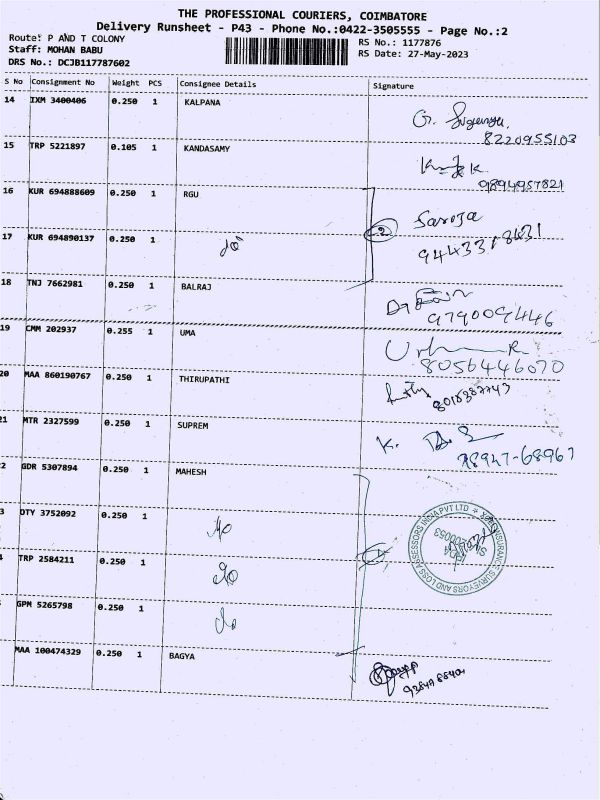 THE PROFESSIONAL COURIERS, COIMBATORE
Delivery Runsheet - P43 - Phone No.:0422-3505555 - Page No.:2
Route: P AND T COLONY
RS No.: 1177876
Staff: MOHAN BABU
RS Date: 27-May-2023
DRS No.: DCJB117787602
S No Consignment No Weight PCS Consignee Details Signature
14 IXM 3400406 0.250 1 KALPANA
8220955103
15 TRP 5221897 0.105 1 KANDASAMY
9894957821
16 KUR 694888609 0.250 1 RGU Saroja
17 KUR 694890137 0.250 1 do
18 TNJ 7662981 0.250 1 BALRAJ
9790009446
19 CMM 202937 0.255 1 UMA
8056446070
20 MAA 860190767 0.250 1 THIRUPATHI
21 MTR 2327599 0.250 1 SUPREM K.
78947-68967
2 GDR 5307894 0.250 1 MAHESH
3 DTY 3752092 0.250 1 do
INSURANCE SURVEYORS AND LOSS ASSESSORS INDIA PVT LTD
TRP 2584211 0.250 1 do
GPM 5265798 0.250 1 do
MAA 100474329 0.250 1 BAGYA